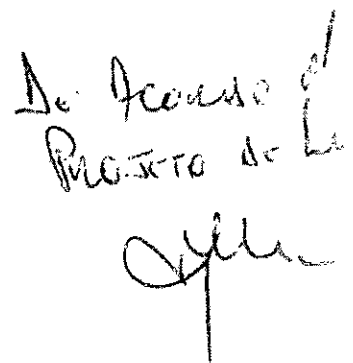 De Acordo p/
PROJETO DE Lei